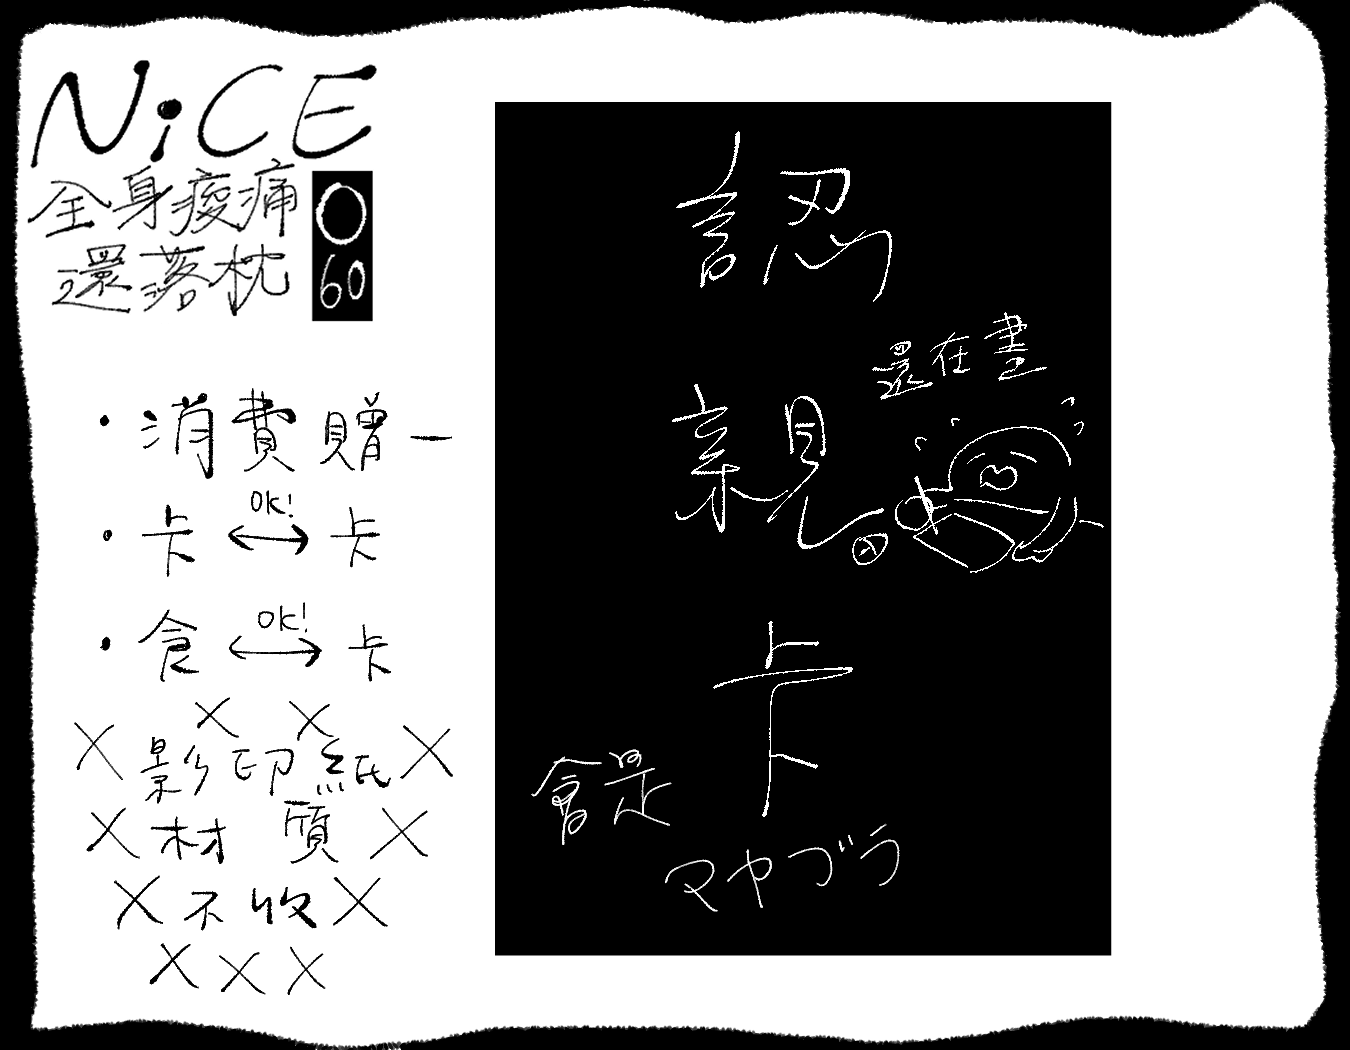 NiCE
全身痠痛
還落枕
〇
60
・消費贈一
・卡 OK! 卡
・食 OK! 卡
影印紙
材質
不收
認
親
卡
還在畫
會是
マヤブラ